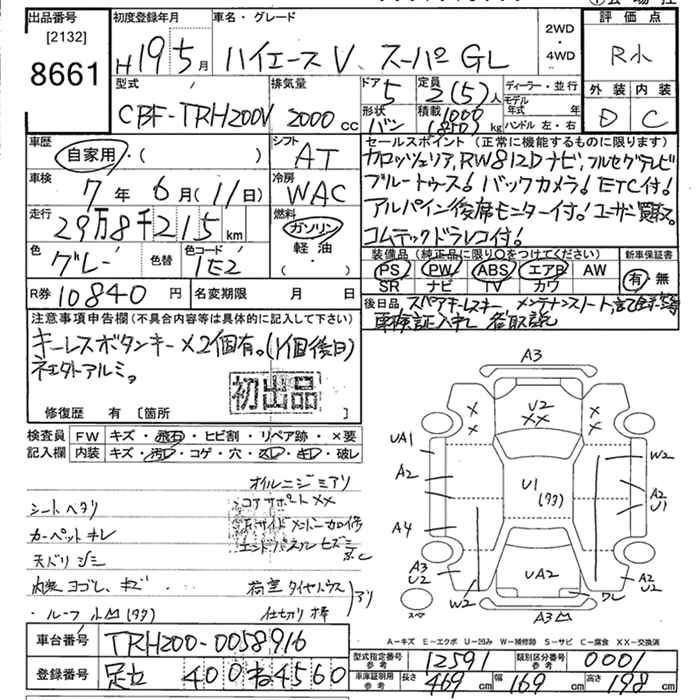 出品番号
[2132]
8661
初度登録年月
H19 5月
車名・グレード
ハイエースV スーパーGL
2WD
・
4WD
評価点
R小
外装 内装
D C
型式
CBF-TRH200V
排気量
2000 cc
ドア 5
形状 バン
定員 2(5)人
積載 1000 (850) kg
ディーラー・並行
モデル年式 年
ハンドル 左・右
車歴
自家用・( )
シフト
AT
車検
7年 6月(11日)
冷房
WAC
走行
29万8千215 km
燃料
ガソリン
軽油
・( )
色
グレー
色替
色コード
1E2
R券 10840円
名変期限 月 日
セールスポイント(正常に機能するものに限ります)
カロッツェリア,RW812Dナビ,フルセグテレビ
ブルートゥース! バックカメラ! ETC付!
アルパイン後席モニター付! ユーザー買取。
コムテックドラレコ付!
装備品(純正品に限り○をつけてください)
PS PW ABS エアB AW
SR ナビ TV カワ
新車保証書
有・無
後日品 スペアキーレスキー メンテナンスノート,
車検証入れ 各取説
注意事項申告欄(不具合内容等は具体的に記入して下さい)
キーレスボタンキー×2個有。(1個後日)
社外アルミ。
初出品
修復歴 有 [箇所 ]
検査員記入欄
FW キズ・飛石・ヒビ割・リペア跡・×要
内装 キズ・汚レ・コゲ・穴・スレ・キレ・破レ
オイルニジミアリ
コアサポートXX
シートヘタリ
カーペットキレ
天バリシミ
内装ヨゴレ、キズ
ルーフ小凹(タワ)
仕切り棒
A3
U2
XX
UA1
A2
A4
A3
U2
W2
U1
(タワ)
W2
A2
U1
A2
U2
UA2
ワレ
A3凹
スペア
A-キズ E-エクボ U-凹み W-補修跡 S-サビ C-腐食 XX-交換済
車台番号 TRH200-0058916
登録番号 足立 400 ね 4560
型式指定番号 参考 12591
類別区分番号 参考 0001
車庫証明用 参考 長さ 469cm 幅 169cm 高さ 198cm